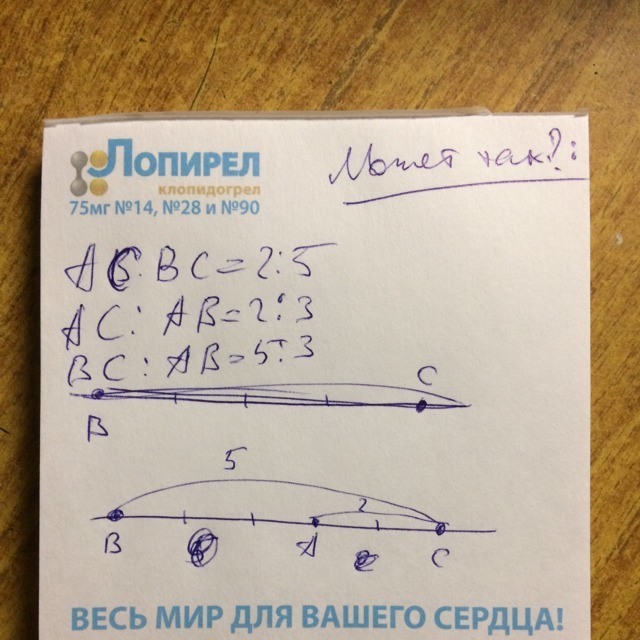 ЛОПИРЕЛ
клопидогрел
75мг №14, №28 и №90
Может так?:
AC:BC=2:5
AC:AB=2:3
BC:AB=5:3
C
B
5
2
B A C
ВЕСЬ МИР ДЛЯ ВАШЕГО СЕРДЦА!